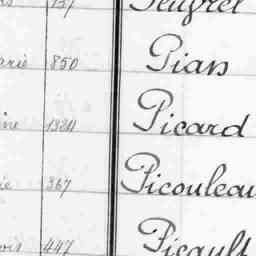 137 Peuvrel
arie 850 Pian
ine 1324 Picard
ie 367 Picouleau
ois 447 Picault